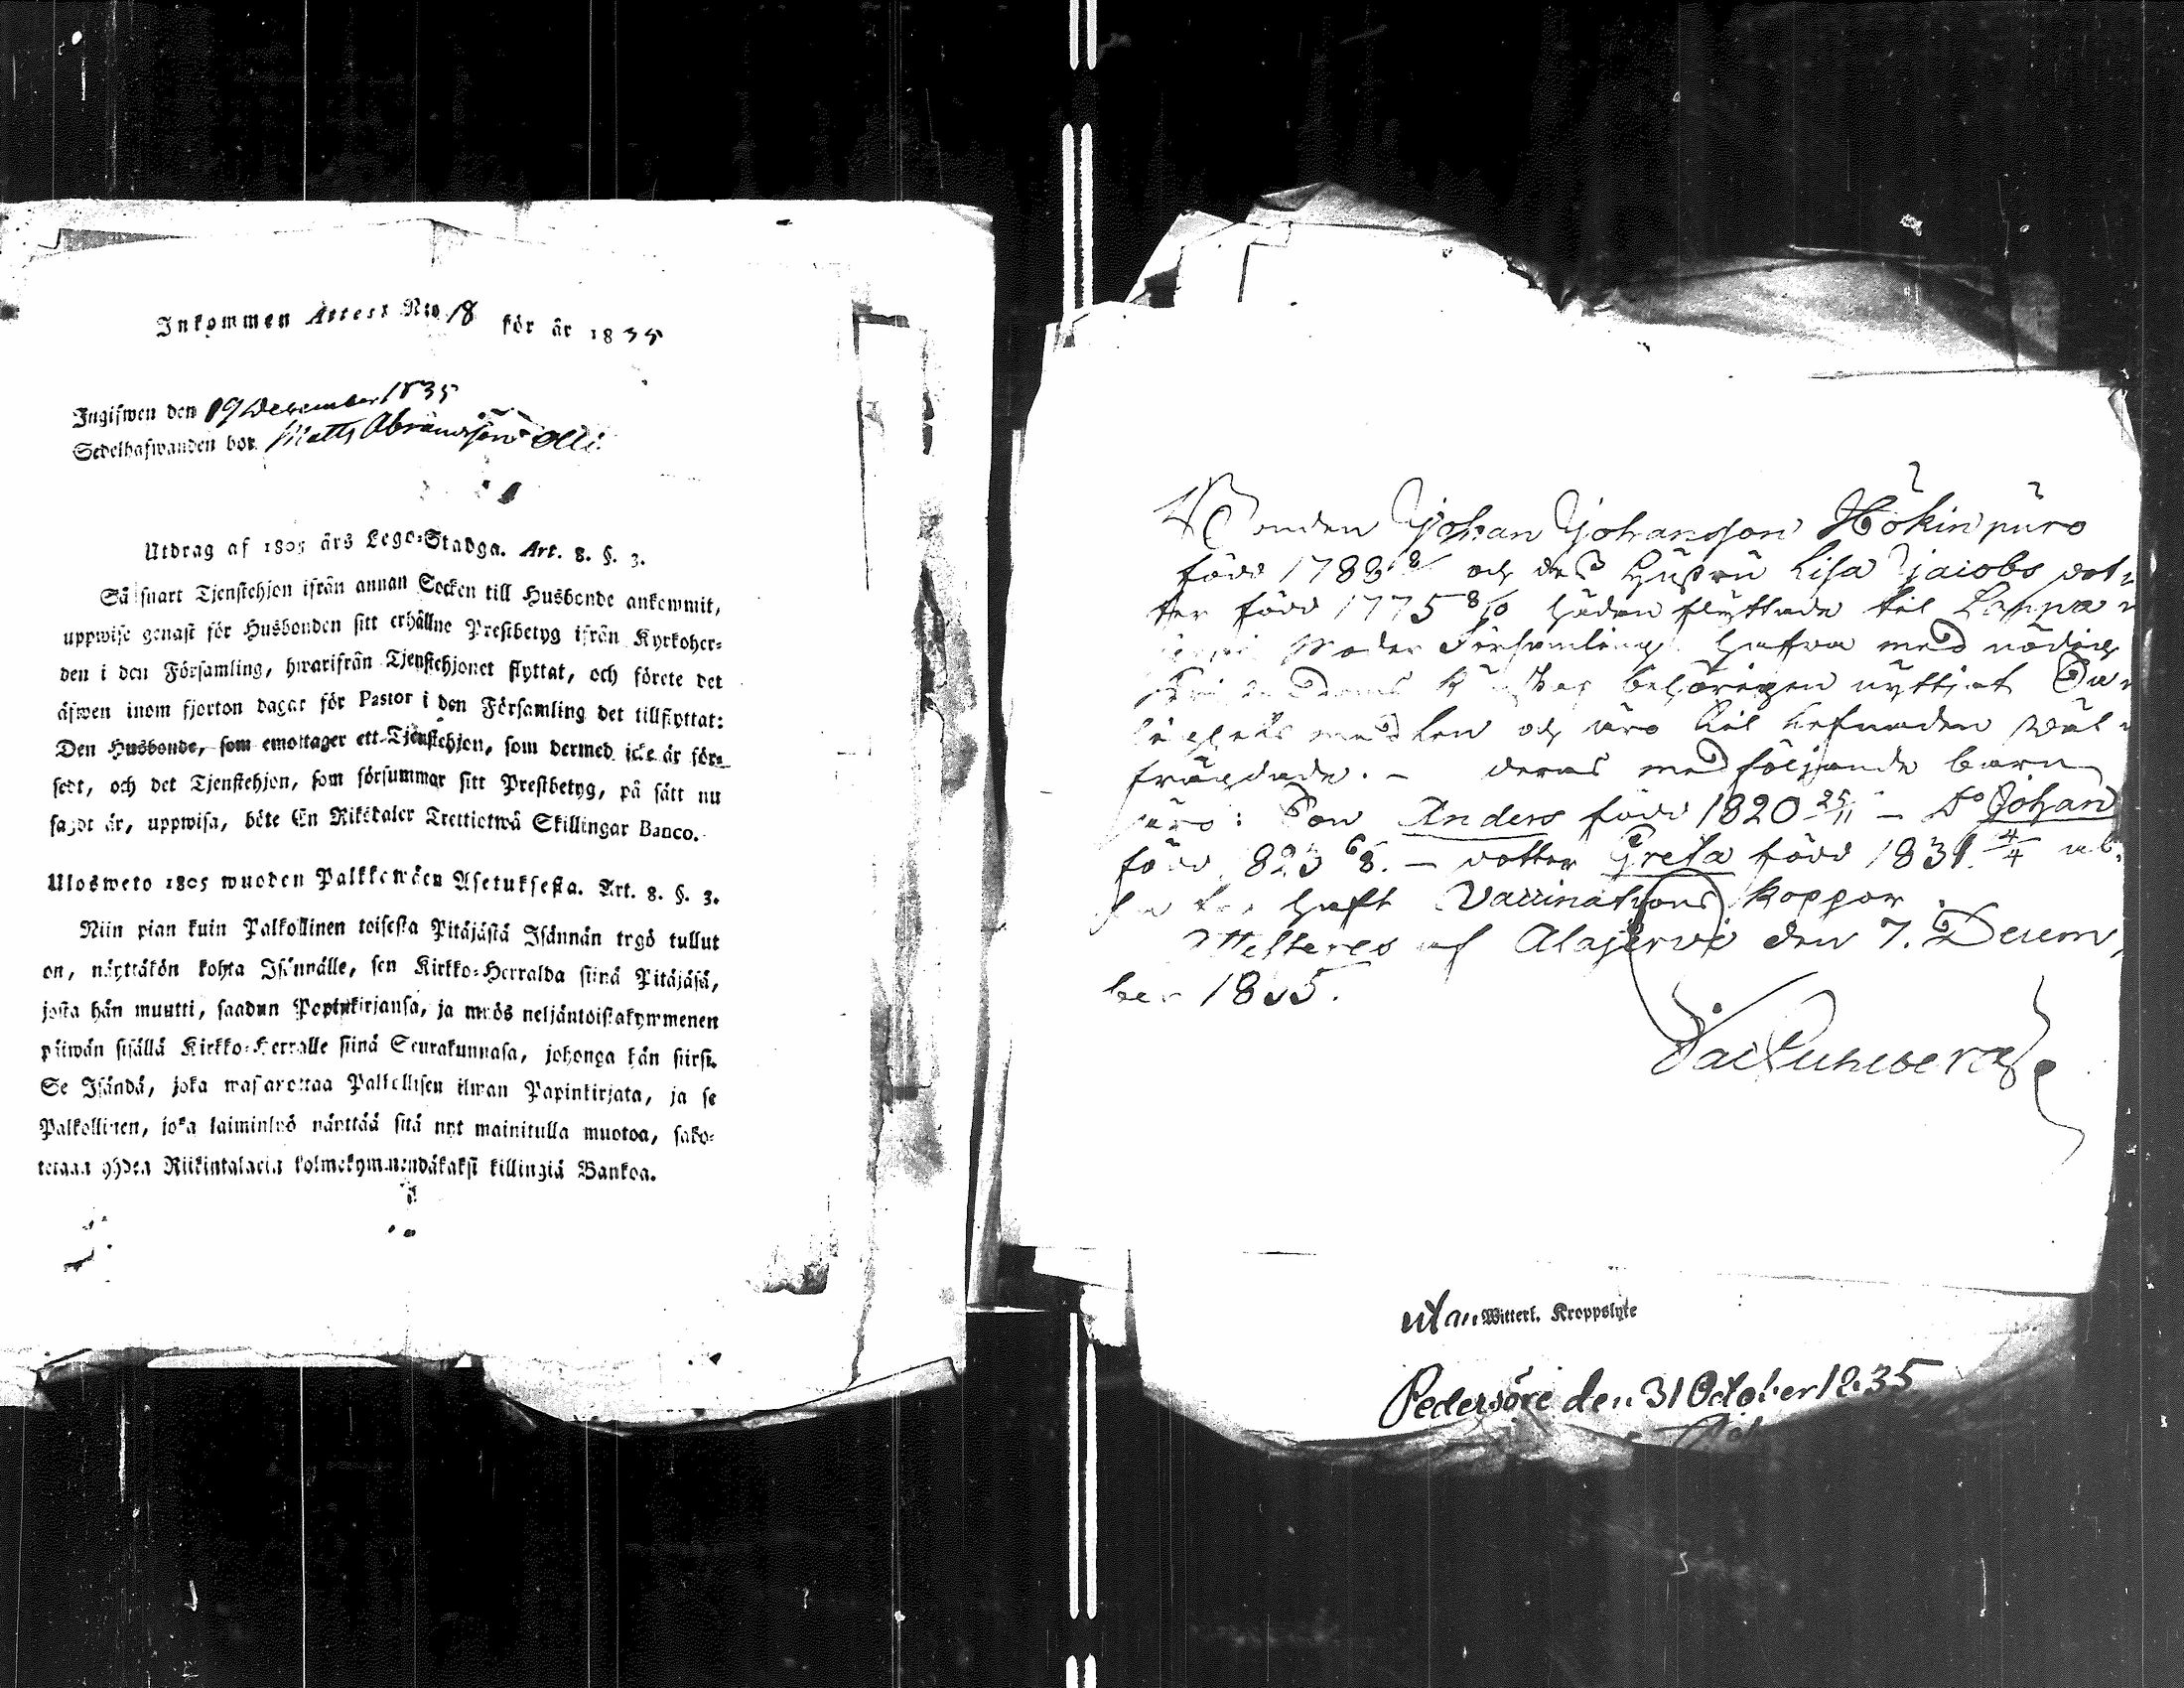 Inkommen Attest N:o 18 för år 1835
Ingifwen den 19 December 1835
Sedelhafwanden bor Matts Abramsson Olli
Utdrag af 1805 års Lego-Stadga. Art. 8. §. 3.
Så snart Tjenstehjon ifrån annan Socken till Husbonde ankommit,
uppwise genast för Husbonden sitt erhållne Prestbetyg ifrån Kyrkoher-
den i den Församling, hwarifrån Tjenstehjonet flyttat, och förete det
äfwen inom fjorton dagar för Pastor i den Församling det tillflyttat:
Den Husbonde, som emottager ett Tjenstehjon, som dermed icke är för-
sedt, och det Tjenstehjon, som försummar sitt Prestbetyg, på sätt nu
sagdt är, uppwisa, böte En Riksdaler Trettiotwå Skillingar Banco.
Ulosweto 1805 wuoden Palkkawäen Asetuksesta. Art. 8. §. 3.
Niin pian kuin Palkollinen toisesta Pitäjästä Isännän tygö tullut
on, näyttäkön kohta Isännälle, sen Kirkko-Herralda siinä Pitäjäsä,
josta hän muutti, saadun Papinkirjansa, ja myös neljäntoistakymmenen
päiwän sisällä Kirkko-Herralle siinä Seurakunnasa, johonga hän siirsi.
Se Isändä, joka wastanottaa Palkollisen ilman Papinkirjata, ja se
Palkollinen, joka laiminlyö näyttää sitä nyt mainitulla muotoa, sako-
tetaan yhden Riikintalarin kolmekymmendäkaksi killingiä Bankoa.
Bonden Johan Johansson Hökinpuro
född 1783 och dess Hustru Lisa Jacobs dot
ter född 1775 8/10 hädan flyttade til Lappa
Moder Församling hafva med nödig
Kunskap behörigen nyttjat
medlen och äro til lefnaden wäl
frägdade. – deras medföljande barn
äro: Son Anders född 1820 25/11 – D:o Johan
född 1823 6/8. – dotter Greta född 1831. 4/4
haft Vaccinations koppor
Westeres af Alajervi den 7. Decem
ber 1835.
utan Witterl. Kroppslyte
Pedersöre den 31 October 1835